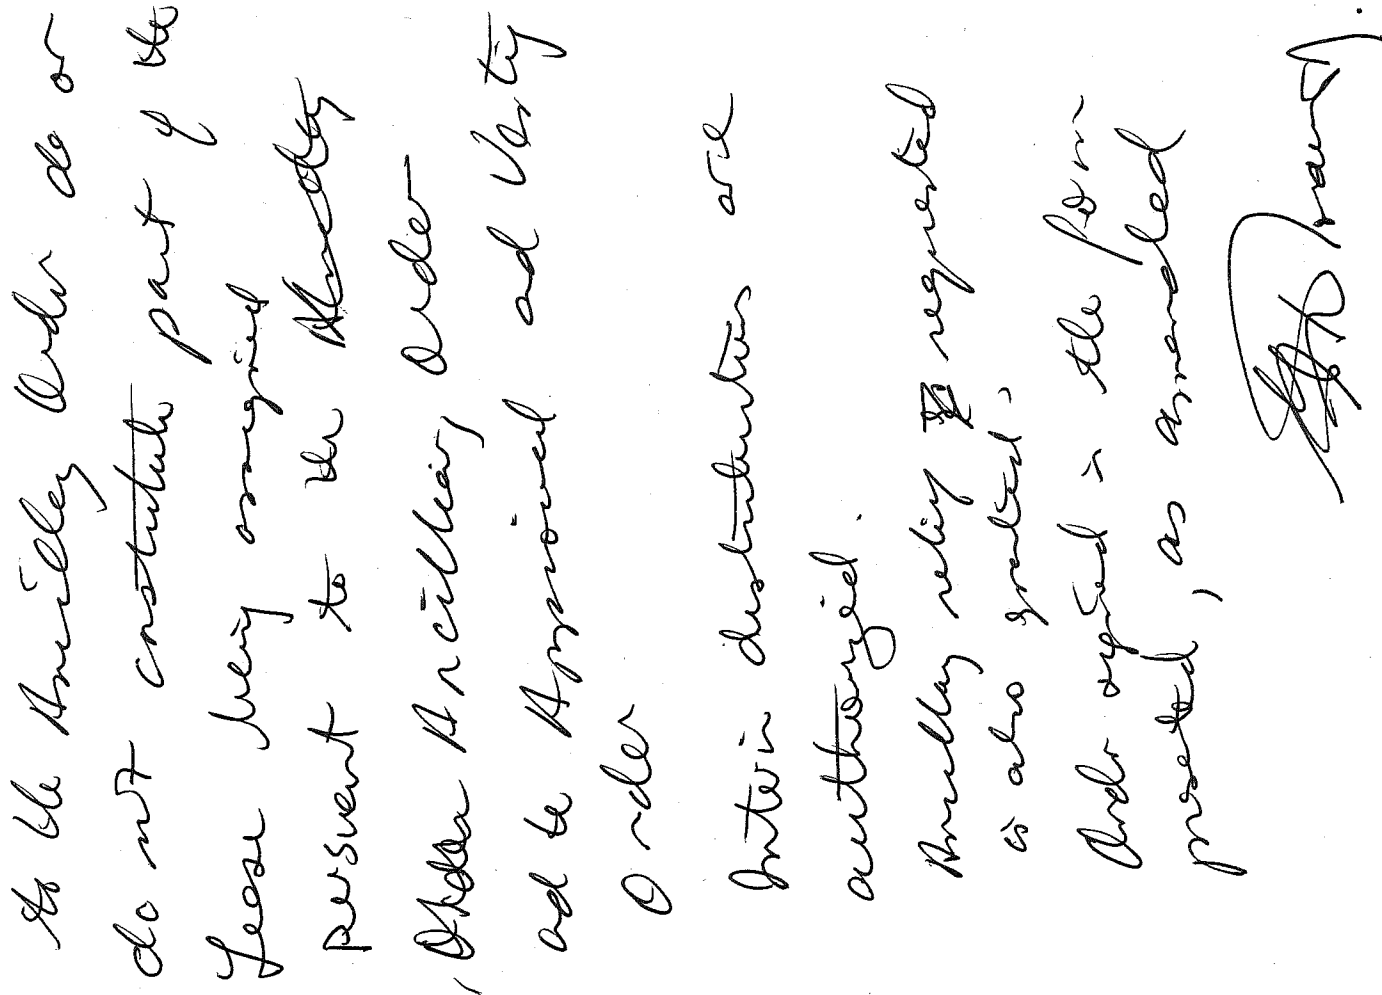 to the Ancillary Order do or
do not constitute part of the
Lease being assigned
pursuant to the
Ancillary Order
and the Approval and Vesting
Order
Interim distributions are
authorized.
Ancillary relief requested
is also granted.
Order signed in the form
presented, as amended